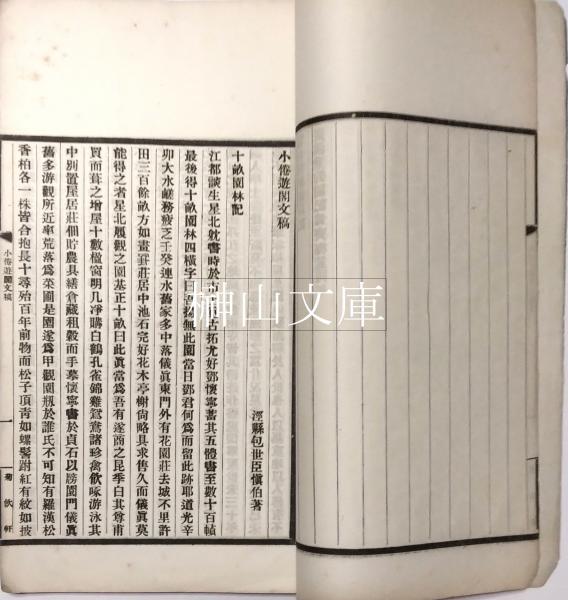 小倦遊閣文稿
涇縣包世臣愼伯著
十畝園林記
江都談生星北躭書時於市 古拓尤好鄧懷寧蓄其五體書至數十百幀
最後得十畝園林四橫字曰吾揚無此園當日鄧君何爲而留此跡耶道光辛
卯大水鹾務疲乏壬癸連水舊家多中落儀眞東門外有花園莊去城不里許
田三百餘畝方如畫 莊居中池石完好花木亭榭尙略具求售久而儀眞莫
能得之者星北屨觀之園基正十畝曰此眞當爲吾有遂商之昆季白其尊甫
買而葺之增屋十數楹窗明几凈購白鶴孔雀錦雞鴛鴦諸珍禽飮啄游泳其
中別置屋居莊佃貯農具繕倉藏租穀而手摹懷寧書於貞石以牓園門儀眞
舊多游觀所近率荒落爲菜圃是園遂爲甲觀園瓶於誰氏不可知有羅漢松
香柏各一株皆合抱長十尋殆百年前物而松子頂靑如螺髻跗紅有紋如披
小倦遊閣文稿
一
榊山文庫